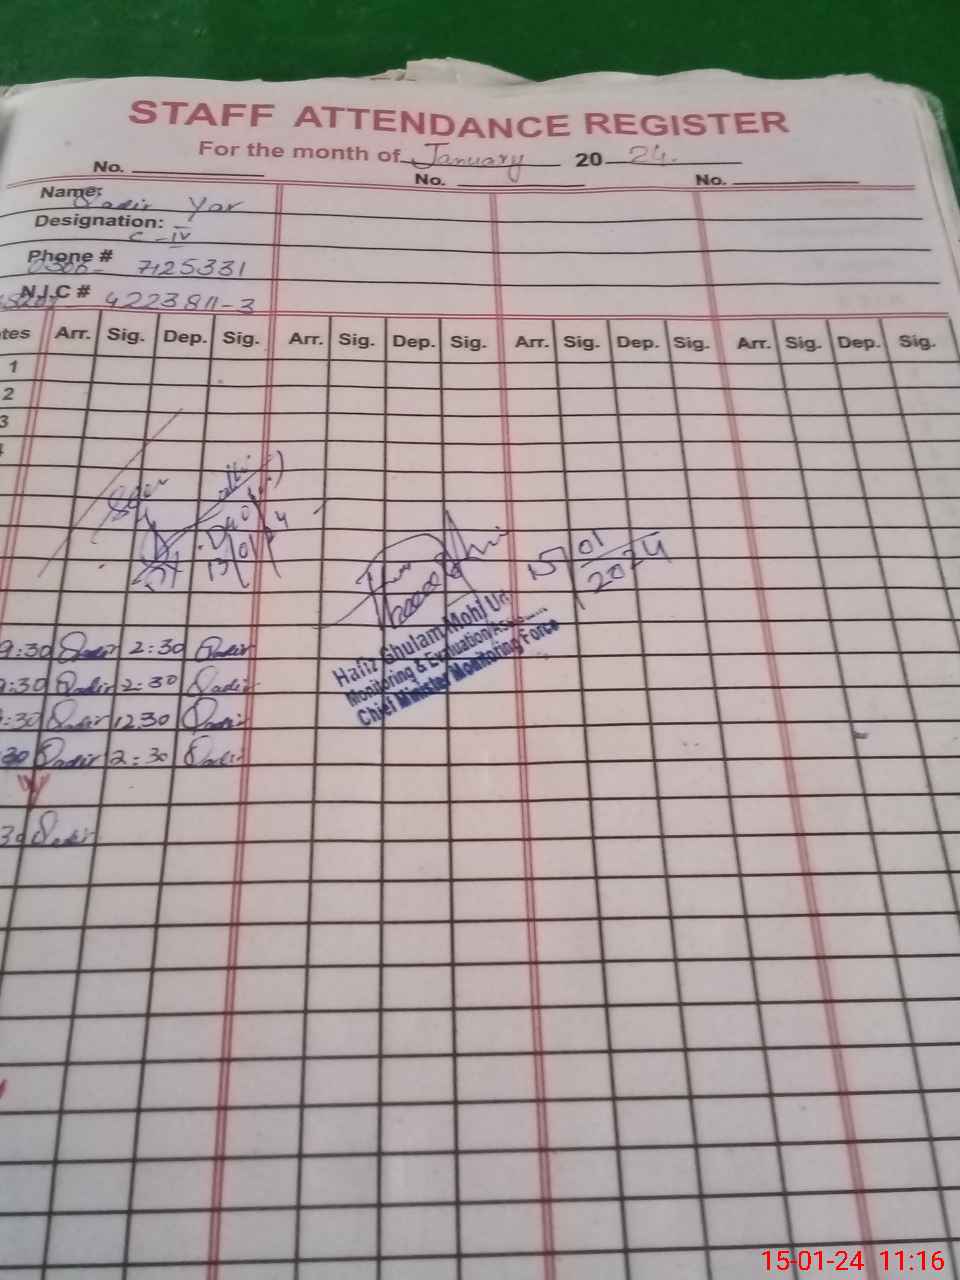 STAFF ATTENDANCE REGISTER
For the month of January 2024.
No. No. No.
Name: Qadir Yar
Designation: C-IV
Phone # 0306- 7125331
N.I.C # 4223811-3
tes Arr. Sig. Dep. Sig. Arr. Sig. Dep. Sig. Arr. Sig. Dep. Sig. Arr. Sig. Dep. Sig.
1
2
3
13/01/24
15/01/2024
Hafiz Ghulam Mohi Ud
Monitoring & Evaluation
Chief Minister Monitoring Force
9:30 Qadir 2:30 Qadir
9:30 Qadir 2:30 Qadir
:30 Qadir 12.30 Qadir
30 Qadir 2:30 Qadir
W
30 Qadir
15-01-24 11:16